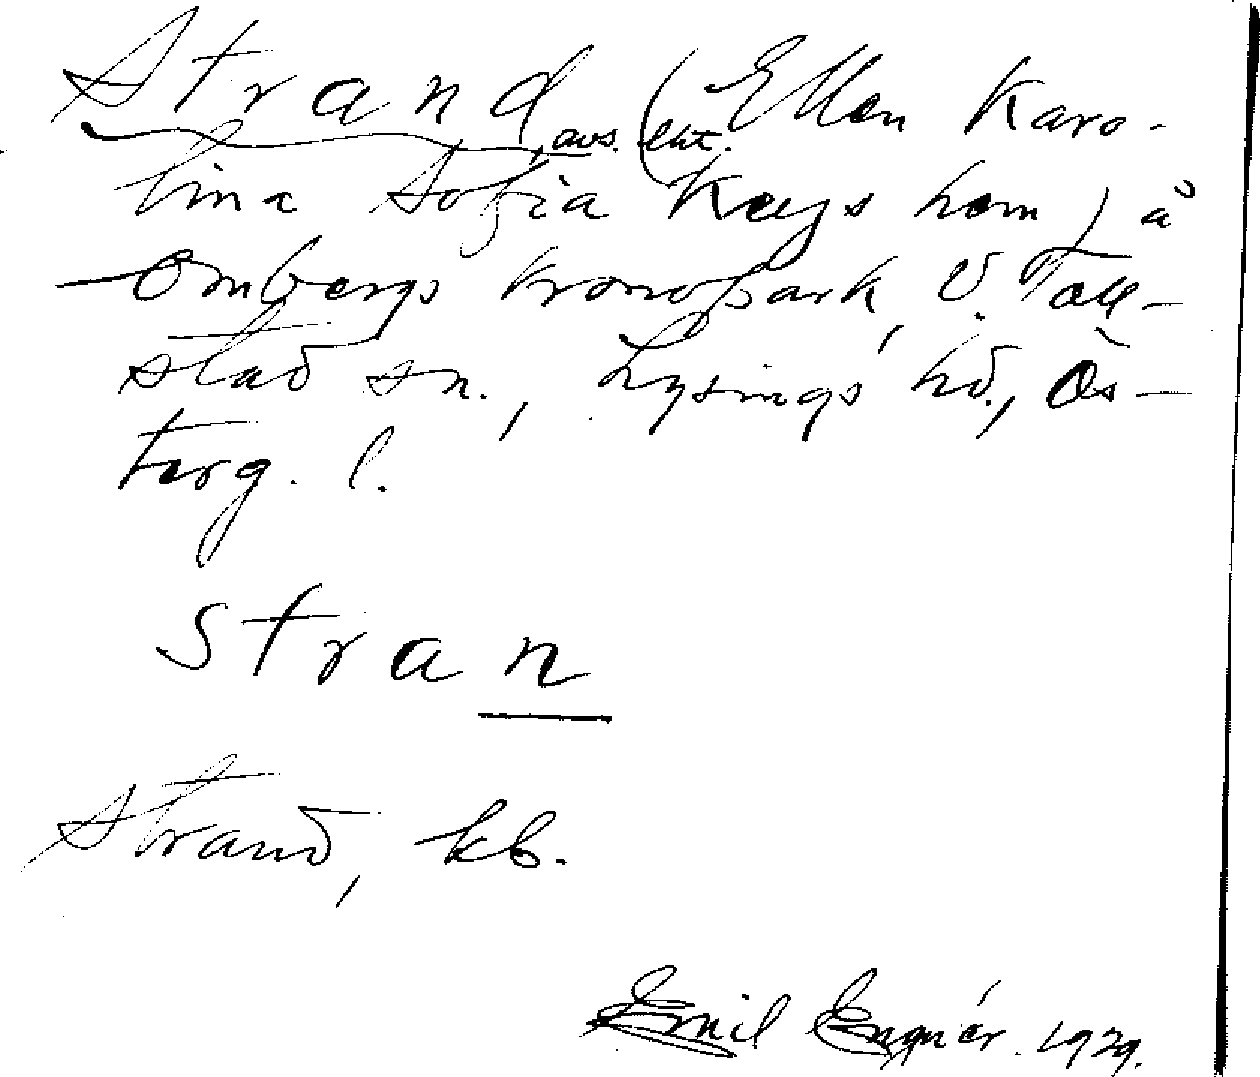 Strand, avs. lht. (Ellen Karo-
lina Sofia Keys hem) å
Ombergs kronopark, V. Toll-
stad sn., Lysings hd., Ös-
terg. l.
Stran
Strand, kb.
Emil Engnér. 1929.